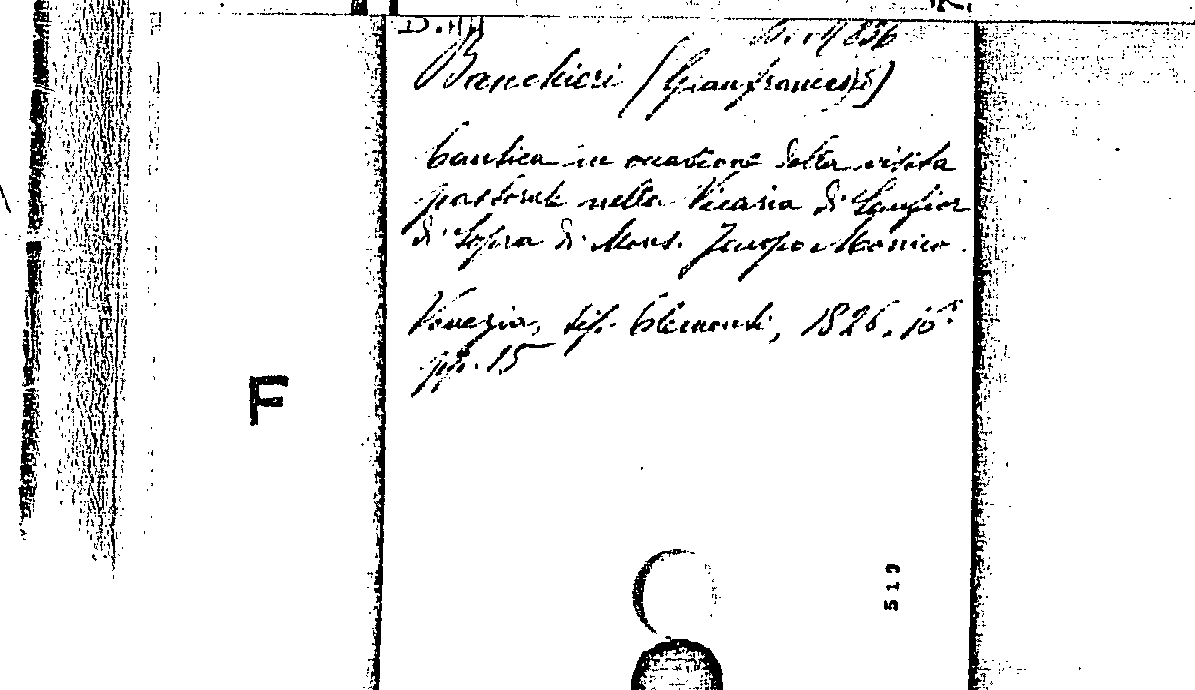 Banchieri (Gianfrancesco)
Cantica in occasione della visita
pastorale nella Vicaria di Sanfior
di Sopra di Mons. Jacopo Monico.
Venezia, tip. Alvisopoli, 1826. 16°
pp. 15
F
519